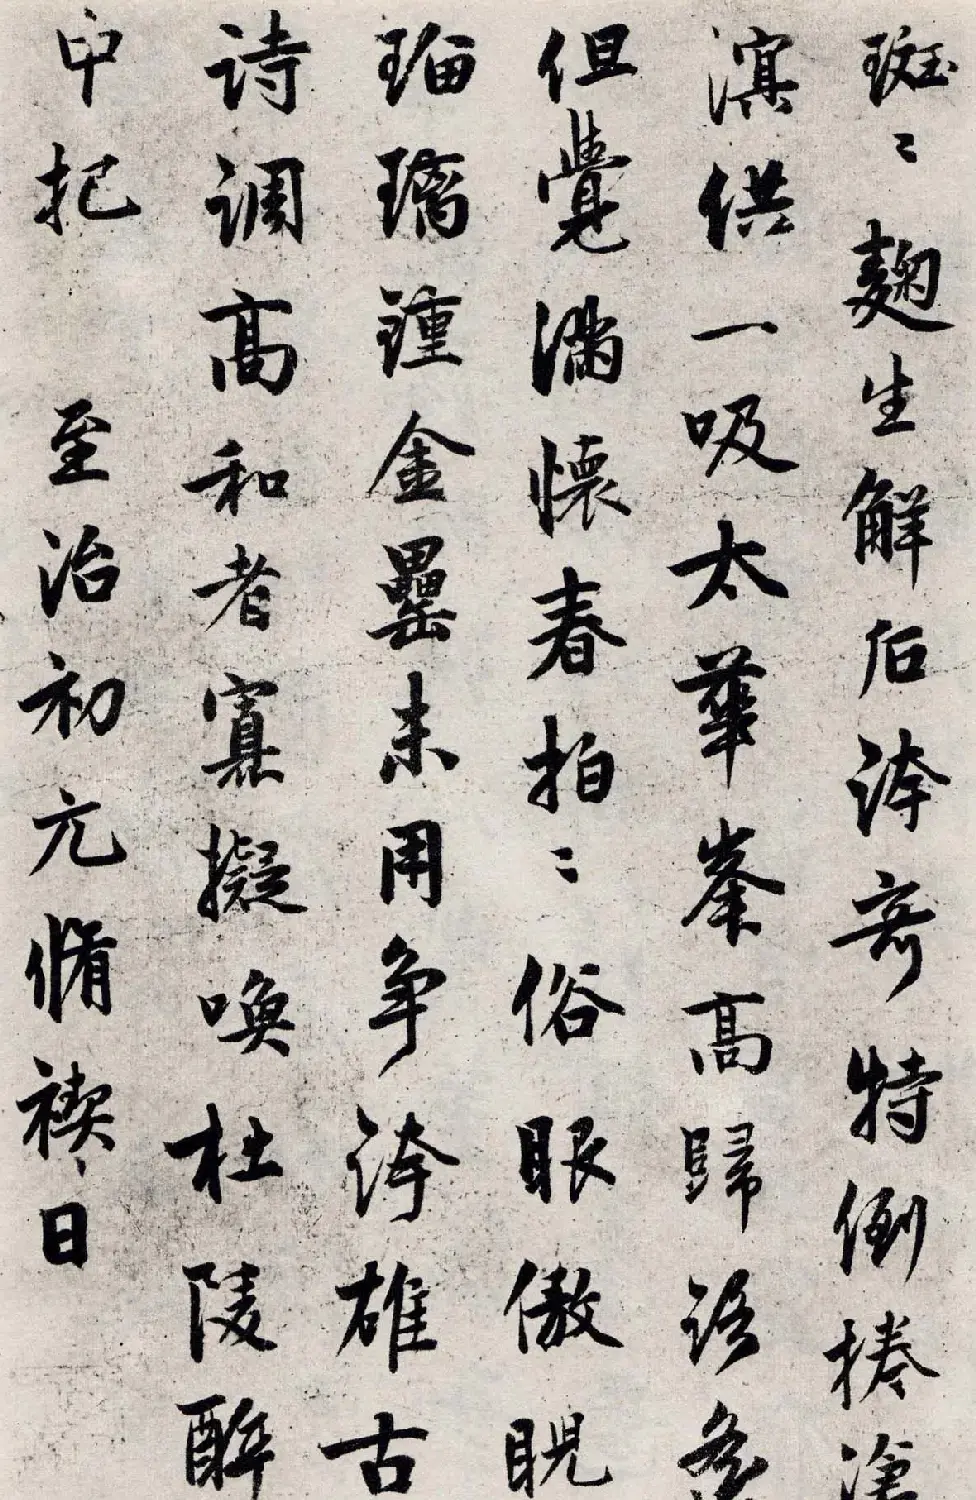 斑〻麹生解后誇奇特倒捲滄
溟供一吸太華峯高歸語
但覺滿懷春拍〻俗眼傲睨
瑠璃鍾金罍未用爭誇雄古
詩調高和者寡擬喚杜陵醉
中把 至治初元脩禊日